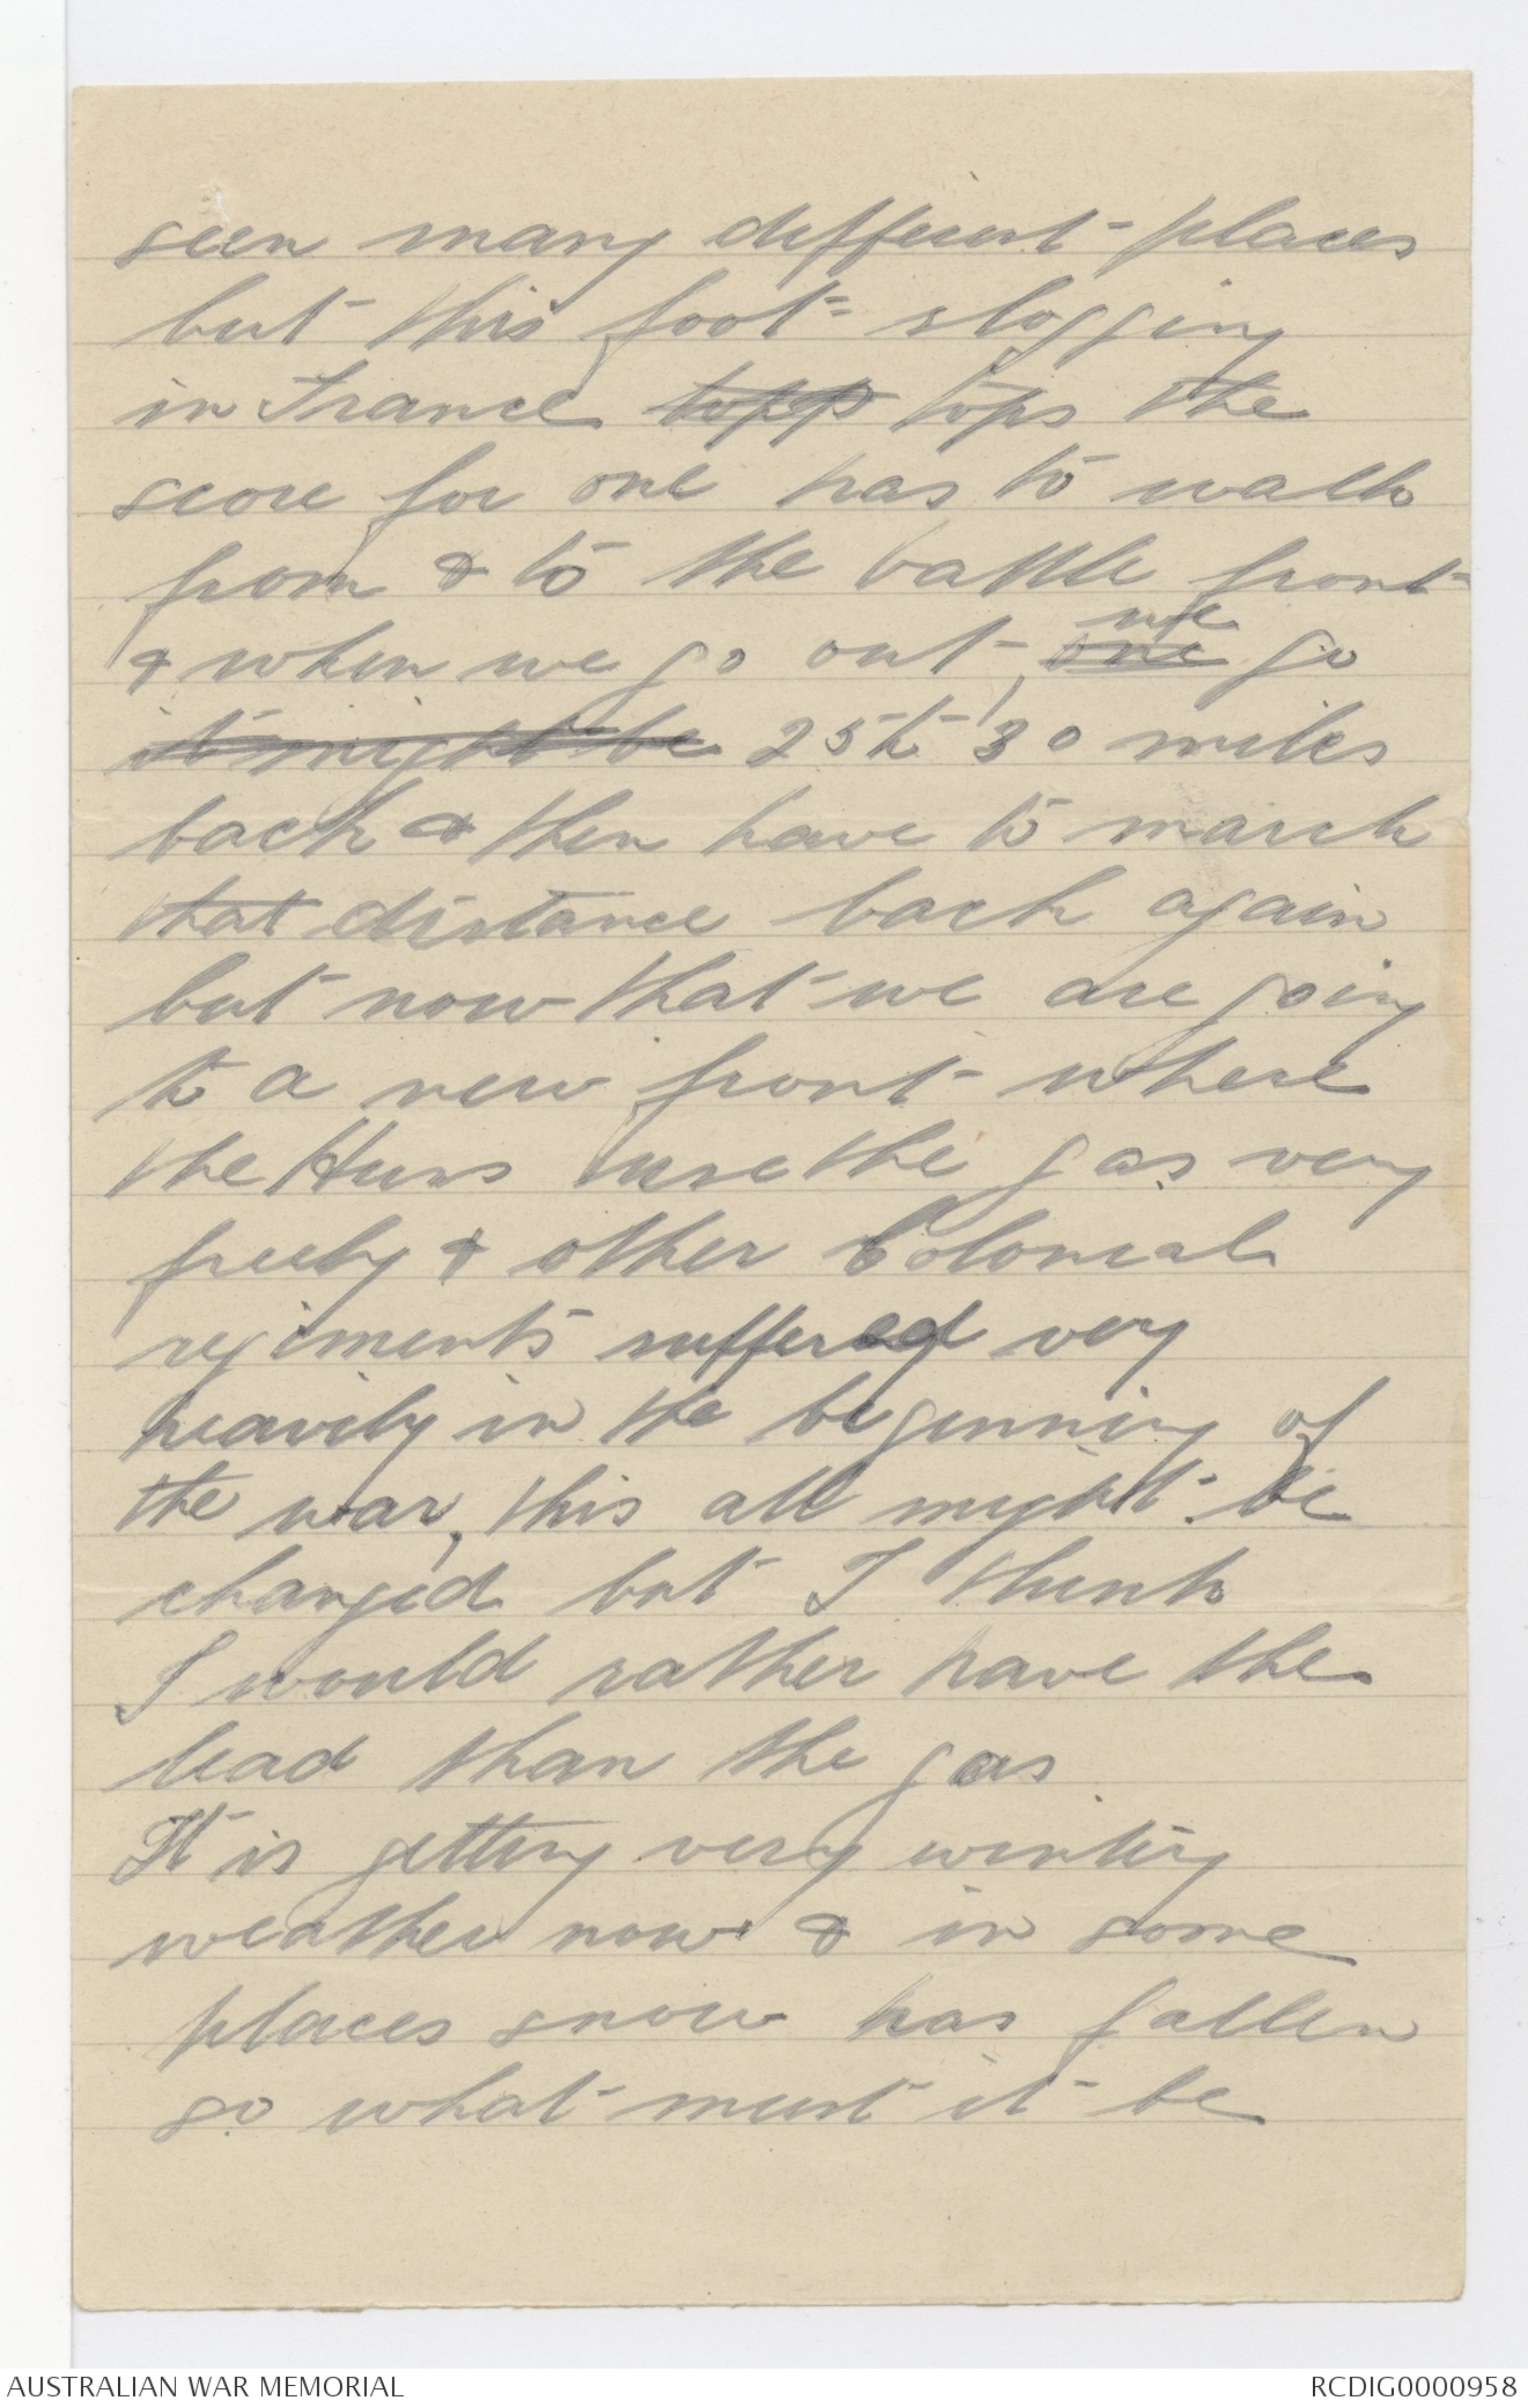 seen many different places
but this foot-slogging
in France topp tops the
score for one has to walk
from & to the battle front
& when we go out, one we go
it might be 25 to 30 miles
back & then have to march
that distance back again
but now that we are going
to a new front where
the Huns use the gas very
freely & other Colonial
regiments suffered very
heavily in the beginning of
the war, this all might be
changed but I think
I would rather have the
lead than the gas.
It is getting very wintery
weather now & in some
places snow has fallen
so what must it be
AUSTRALIAN WAR MEMORIAL
RCDIG0000958